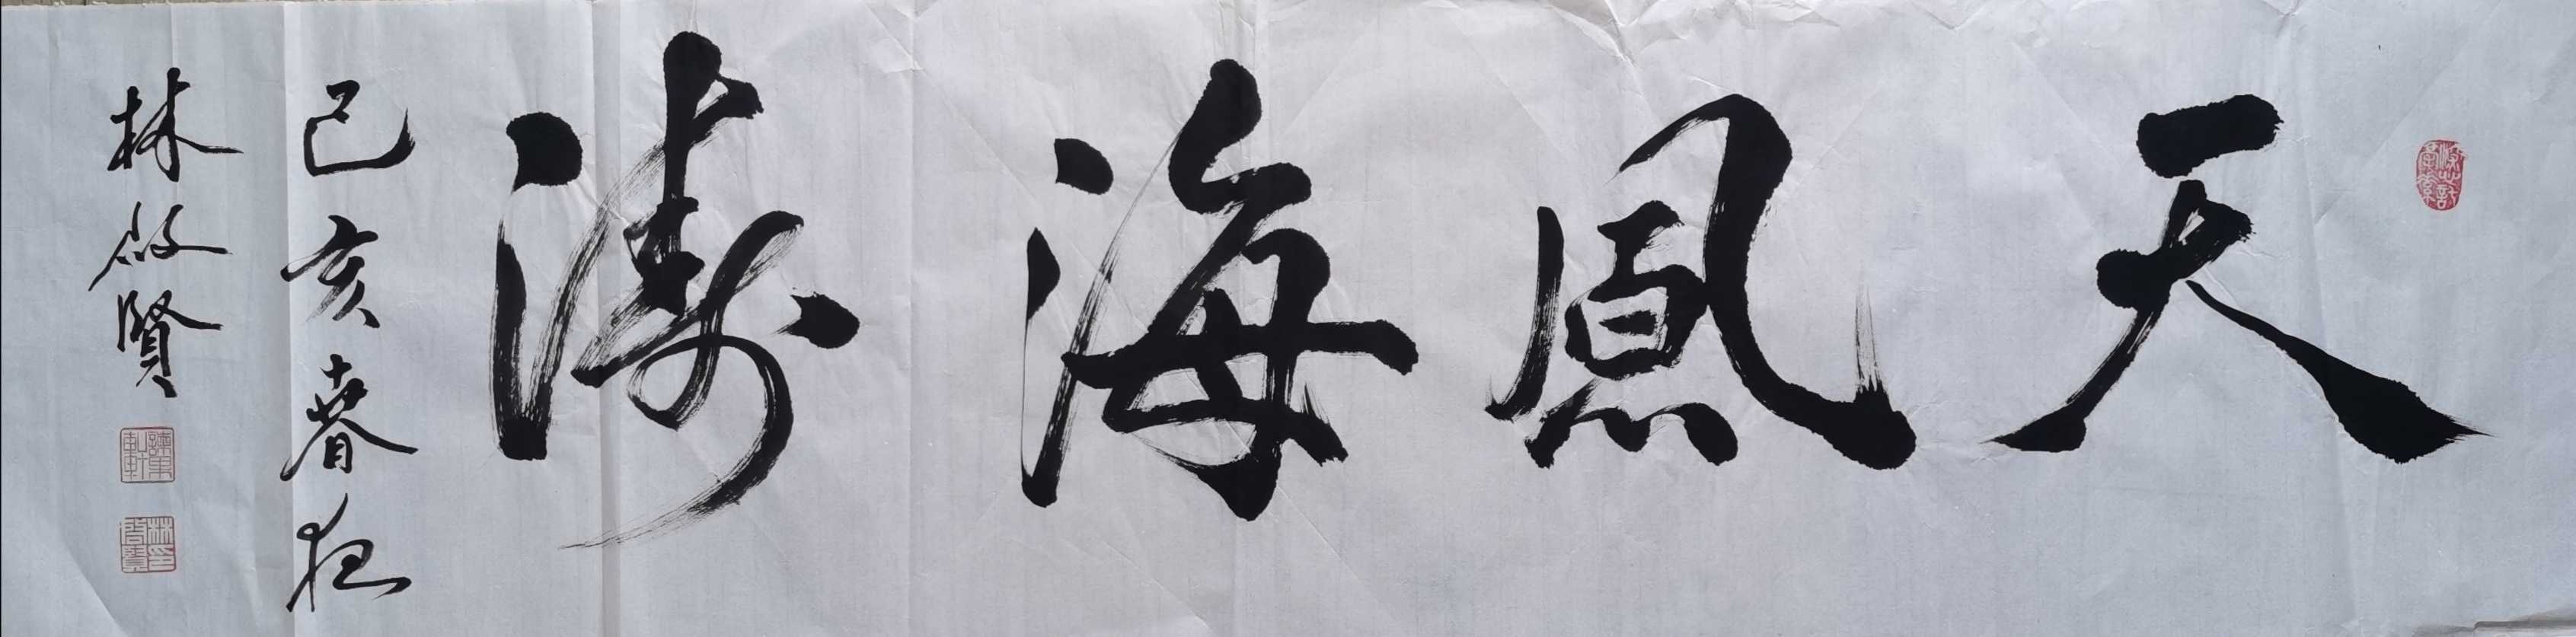 天風海濤
己亥春
林啟賢